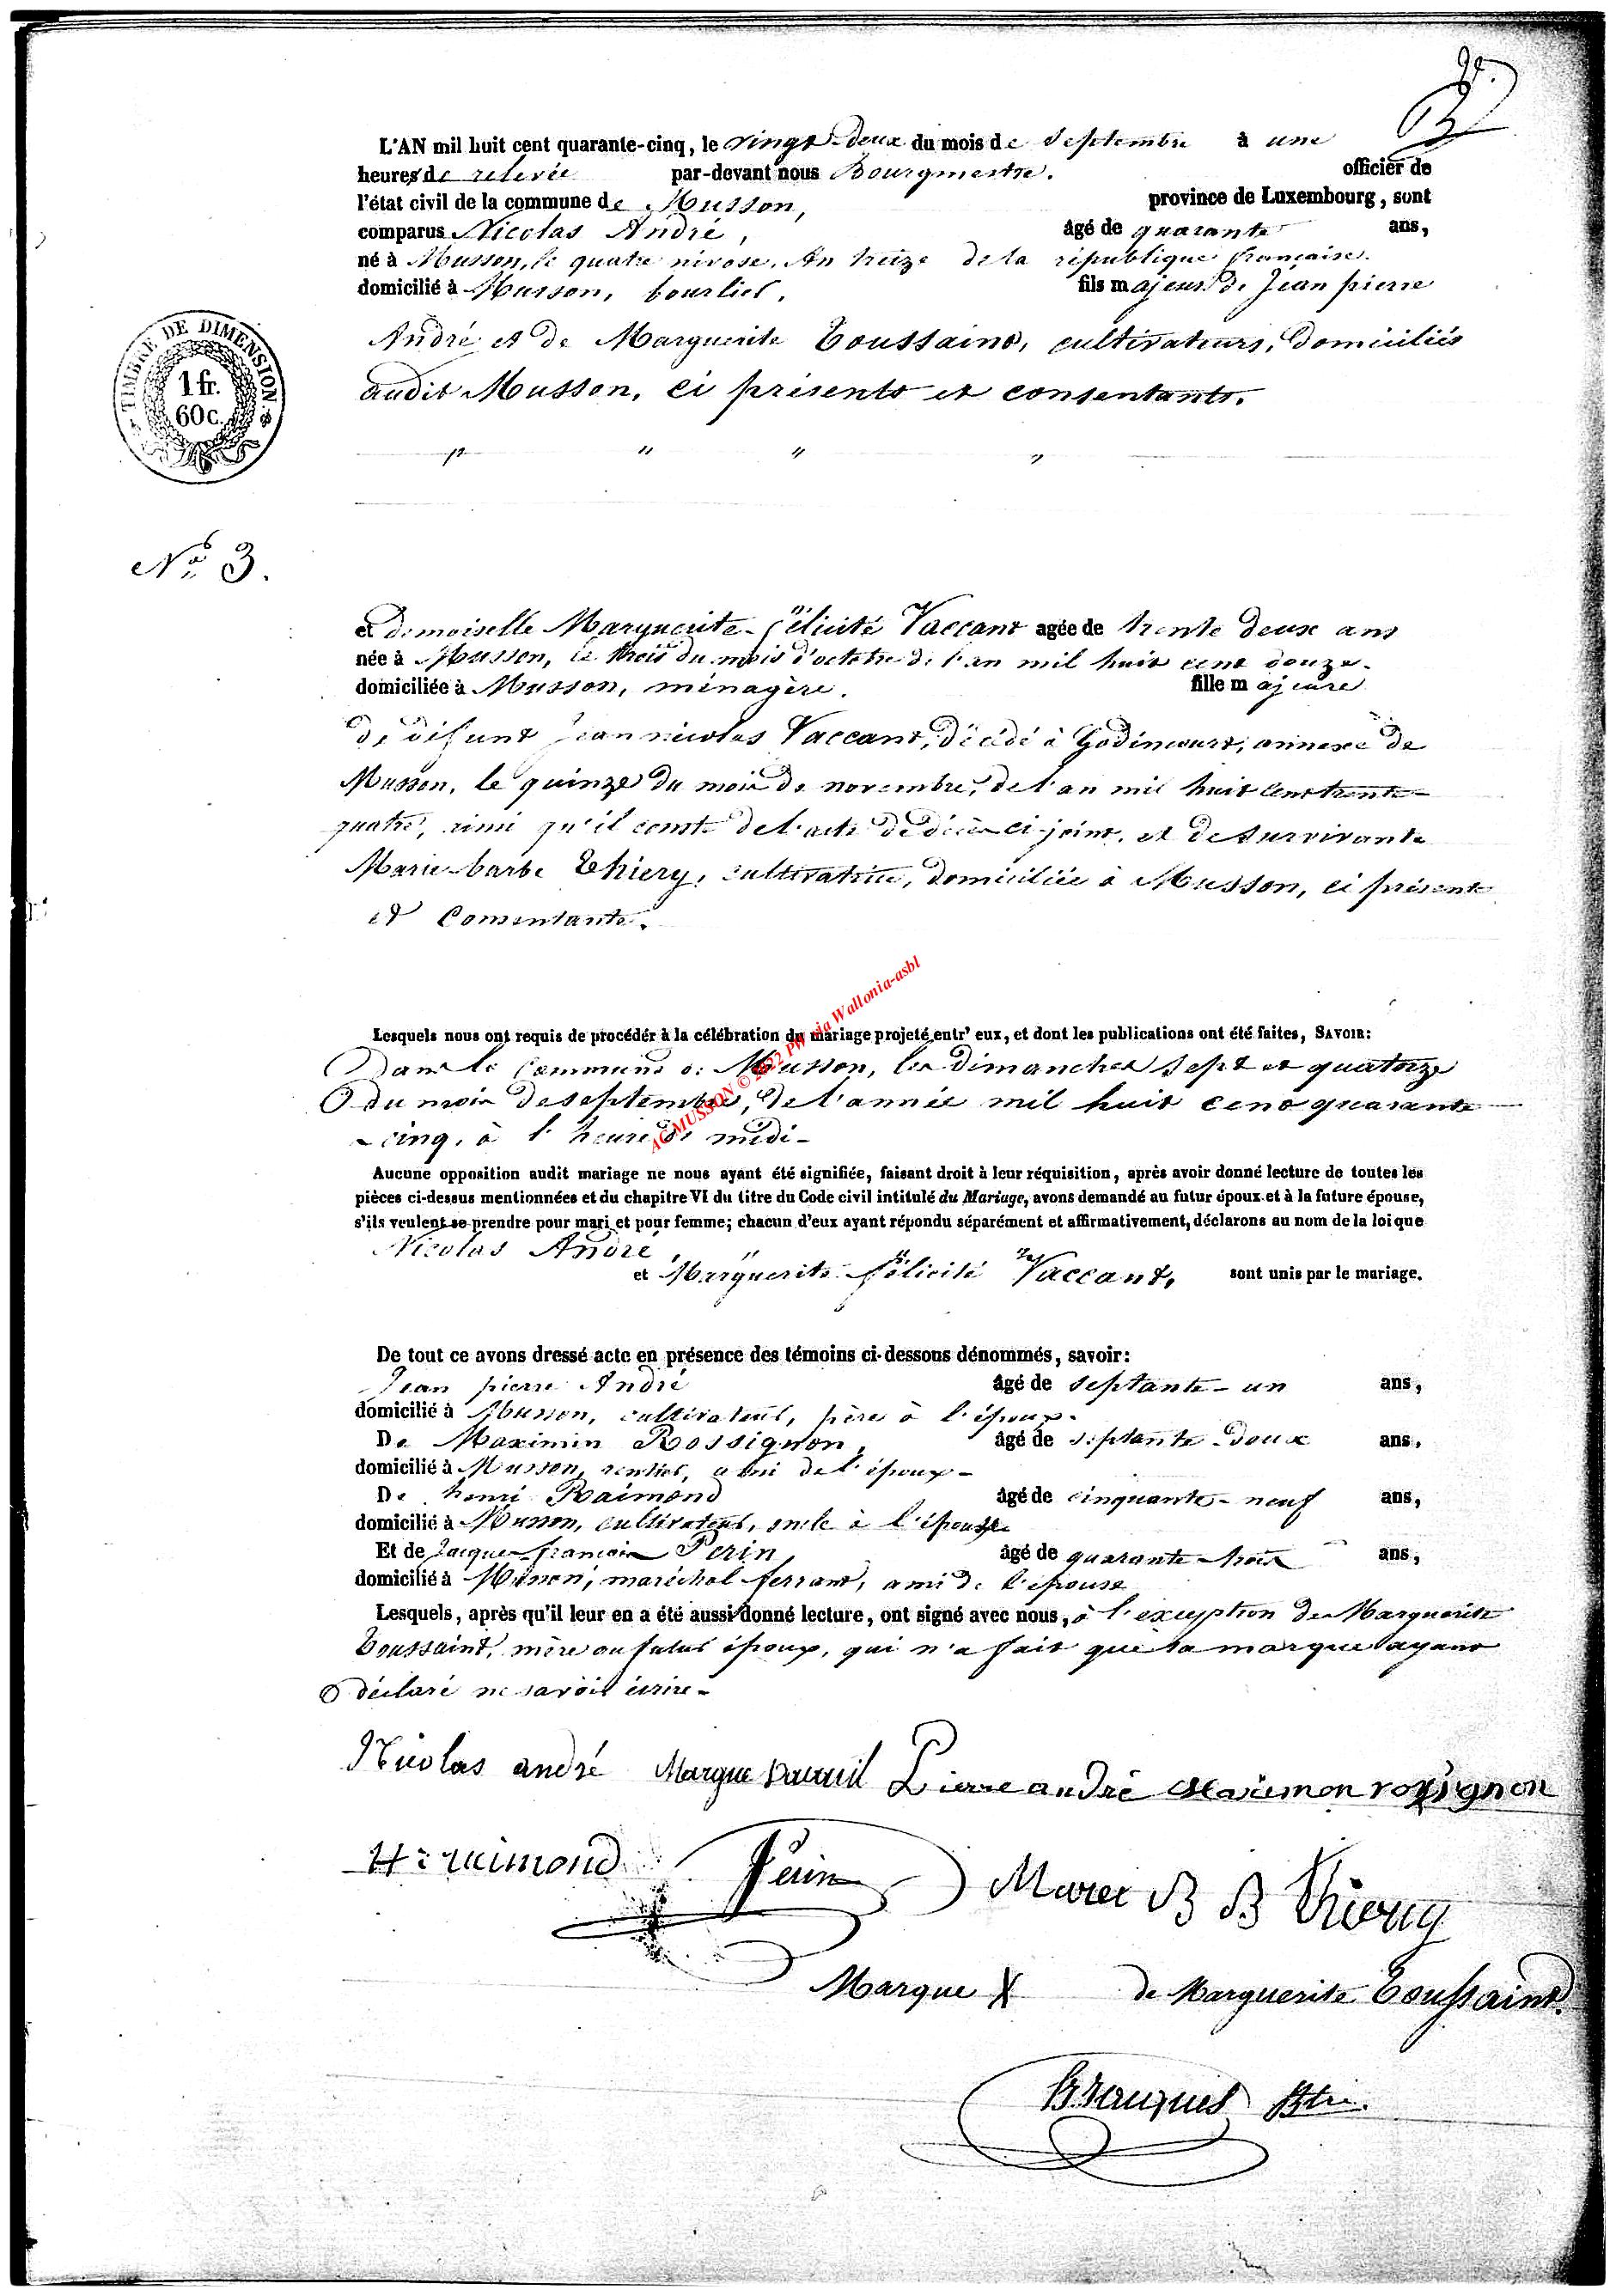 2e.
L'AN mil huit cent quarante-cinq, le vingt-deux du mois de Septembre à une
heures de relevée par-devant nous Bourgmestre. officier de
l'état civil de la commune de Musson, province de Luxembourg, sont
comparus Nicolas André, âgé de quarante ans,
né à Musson, le quatre nivose, An treize de la république française.
domicilié à Musson, bourlier. fils majeur de Jean pierre
André et de Marguerite Toussaint, cultivateurs, domiciliés
audit Musson, ci présents et consentants.
" " " "
TIMBRE DE DIMENSION
1 fr.
60 c.
No 3.
et demoiselle Marguerite-félicité Vaccant agée de trente deux ans
née à Musson, le trois du mois d'octobre de l'an mil huit cent douze.
domiciliée à Musson, ménagère. fille majeure
de défunt Jean nicolas Vaccant, décédé à Godincourt, annexe de
Musson, le quinze du mois de novembre, de l'an mil huit cent trente-
quatre, ainsi qu'il conste de l'acte de décès ci-joint, et de survivante
Marie-barbe Thiery, cultivatrice, domiciliée à Musson, ci présente
et Consentante.
AC MUSSON © 2022 PW via Wallonia-asbl
Lesquels nous ont requis de procédér à la célébration du mariage projeté entr' eux, et dont les publications ont été faites, SAVOIR:
Dans la Commune de Musson, les dimanches sept et quatorze
du mois de septembre, de l'année mil huit cent quarante
-cinq, à l'heure de midi-
Aucune opposition audit mariage ne nous ayant été signifiée, faisant droit à leur réquisition, après avoir donné lecture de toutes les
pièces ci-dessus mentionnées et du chapitre VI du titre du Code civil intitulé du Mariage, avons demandé au futur époux et à la future épouse,
s'ils veulent se prendre pour mari et pour femme; chacun d'eux ayant répondu séparément et affirmativement, déclarons au nom de la loi que
Nicolas André,
et Marguerite félicité Vaccant, sont unis par le mariage.
De tout ce avons dressé acte en présence des témoins ci-dessons dénommés, savoir:
Jean pierre André âgé de septante-un ans,
domicilié à Musson, cultivateur, père à l'époux.
De Maximin Rossignon, âgé de septante-deux ans,
domicilié à Musson, rentier, ami de l'époux-
De henri Raimond âgé de cinquante-neuf ans,
domicilié à Musson, cultivateur, oncle à l'épouse
Et de Jacques françois Perin âgé de quarante-trois ans,
domicilié à Musson, maréchal ferrant, ami de l'épouse
Lesquels, après qu'il leur en a été aussi donné lecture, ont signé avec nous, à l'exception de Marguerite
Toussaint, mère au futur époux, qui n'a fait que sa marque ayant
déclaré ne savoir écrire-
Nicolas andré Pierre andré Maximon rossignon
Hri raimond Perin Marei B B Thiery
Marque X de Marguerite Toussaint.